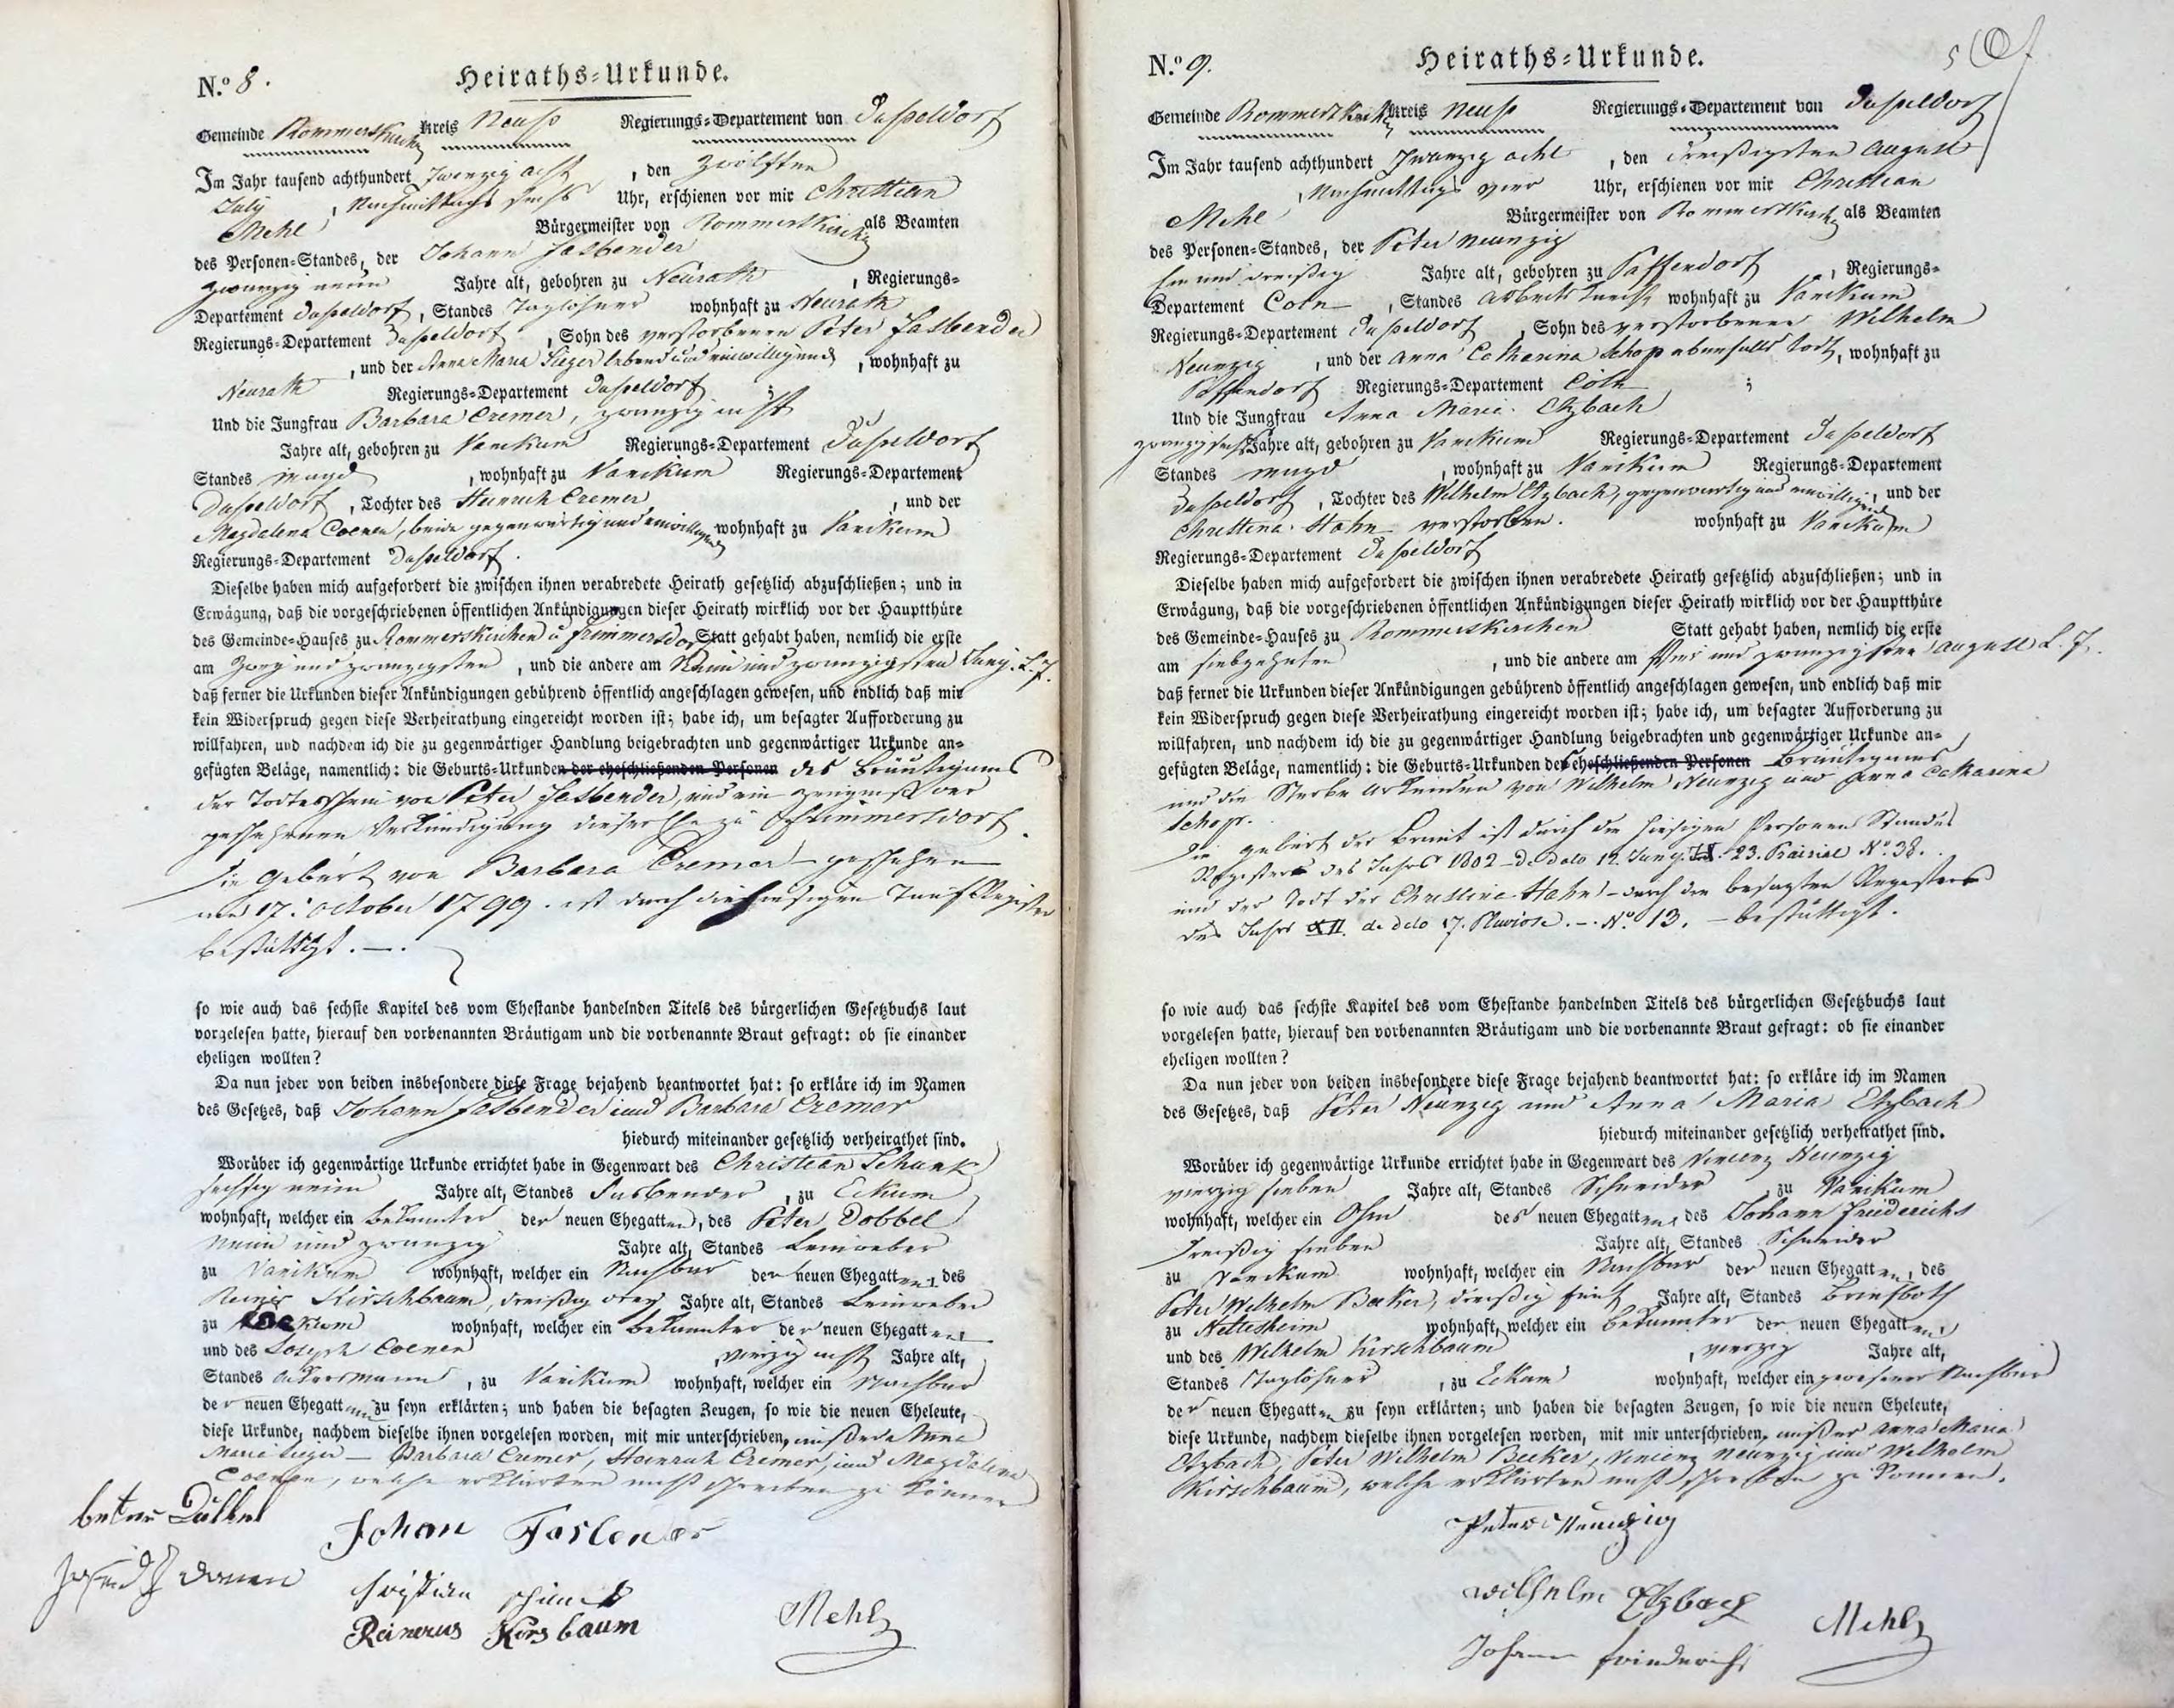 N.o 8.
Heiraths-Urkunde.
Gemeinde Rommerskirchen Kreis Neuss Regierungs-Departement von Dusseldorf
Im Jahr tausend achthundert zwanzig acht, den zwölften
July, Nachmittags sechs Uhr, erschienen vor mir Christian
Mehl Bürgermeister von Rommerskirchen als Beamten
des Personen-Standes, der Johann Fasbender
zwanzig neun Jahre alt, gebohren zu Neurath, Regierungs-
Departement Dusseldorf, Standes Taglöhner wohnhaft zu Neurath
Regierungs-Departement Dusseldorf, Sohn des verstorbenen Peter Fasbender
, und der Anna Maria Sieger lebend und einwilligend, wohnhaft zu
Neurath Regierungs-Departement Dusseldorf;
Und die Jungfrau Barbara Cremer, zwanzig acht
Jahre alt, gebohren zu Vanikum Regierungs-Departement Dusseldorf
Standes Magd, wohnhaft zu Vanikum Regierungs-Departement
Dusseldorf, Tochter des Heinrich Cremer, und der
Magdalena Coenen, beide gegenwärtig und einwilligend wohnhaft zu Vanikum
Regierungs-Departement Dusseldorf.
Dieselbe haben mich aufgefordert die zwischen ihnen verabredete Heirath gesetzlich abzuschließen; und in
Erwägung, daß die vorgeschriebenen öffentlichen Ankündigungen dieser Heirath wirklich vor der Hauptthüre
des Gemeinde-Hauses zu Rommerskirchen u Frimmersdorf Statt gehabt haben, nemlich die erste
am zwey und zwanzigsten, und die andere am Neun und zwanzigsten Juny l. J.
daß ferner die Urkunden dieser Ankündigungen gebührend öffentlich angeschlagen gewesen, und endlich daß mir
kein Widerspruch gegen diese Verheirathung eingereicht worden ist; habe ich, um besagter Aufforderung zu
willfahren, und nachdem ich die zu gegenwärtiger Handlung beigebrachten und gegenwärtiger Urkunde an-
gefügten Beläge, namentlich: die Geburts-Urkunden der eheschließenden Personen des Bräutigams
der Todtesschein von Peter Fasbender, und ein Zeugniß der
geschehenen Verkündigung dieser Ehe zu Frimmersdorf.
Die Geburt von Barbara Cremer geschehen
am 17. October 1799. ist durch die hiesigen Tauf Register
bestättigt.
so wie auch das sechste Kapitel des vom Ehestande handelnden Titels des bürgerlichen Gesetzbuchs laut
vorgelesen hatte, hierauf den vorbenannten Bräutigam und die vorbenannte Braut gefragt: ob sie einander
eheligen wollten?
Da nun jeder von beiden insbesondere diese Frage bejahend beantwortet hat: so erkläre ich im Namen
des Gesetzes, daß Johann Fasbender und Barbara Cremer
hiedurch miteinander gesetzlich verheirathet sind.
Worüber ich gegenwärtige Urkunde errichtet habe in Gegenwart des Christian Schunk
sechszig neun Jahre alt, Standes Fasbender, zu Eckum
wohnhaft, welcher ein Bekannter der neuen Ehegatten, des Peter Dobbel
Neun und zwanzig Jahre alt, Standes Leinweber
zu Vanikum wohnhaft, welcher ein Nachbar der neuen Ehegatten, des
Reiner Kirschbaum, dreißig drey Jahre alt, Standes Leinweber
zu wohnhaft, welcher ein Bekannter der neuen Ehegatten
und des Joseph Coenen, vierzig acht Jahre alt,
Standes Ackersmann, zu Vanikum wohnhaft, welcher ein Nachbar
der neuen Ehegatten zu seyn erklärten; und haben die besagten Zeugen, so wie die neuen Eheleute,
diese Urkunde, nachdem dieselbe ihnen vorgelesen worden, mit mir unterschrieben, außer Anna
Maria Sieger – Barbara Cremer, Heinrich Cremer, und Magdalena
Coenen, welche erklärten nicht schreiben zu können
Johan Fasbender
Reinerus Kirsbaum
Mehl
N.o 9.
Heiraths-Urkunde.
Gemeinde Rommerskirchen Kreis Neuss Regierungs-Departement von Dusseldorf
Im Jahr tausend achthundert zwanzig acht, den dreißigsten August
, Nachmittags vier Uhr, erschienen vor mir Christian
Mehl Bürgermeister von Rommerskirchen als Beamten
des Personen-Standes, der Peter Neunzig
ein und dreißig Jahre alt, gebohren zu Paffendorf, Regierungs-
Departement Coln, Standes Arbeits Knecht wohnhaft zu Vanikum
Regierungs-Departement Dusseldorf, Sohn des verstorbenen Wilhelm
Neunzig, und der Anna Catharina Schop ebenfalls todt, wohnhaft zu
Paffendorf Regierungs-Departement Cöln;
Und die Jungfrau Anna Maria Etzbach
zwanzig sechs Jahre alt, gebohren zu Vanikum Regierungs-Departement Dusseldorf
Standes Magd, wohnhaft zu Vanikum Regierungs-Departement
Dusseldorf, Tochter des Wilhelm Etzbach, gegenwärtig und einwilligend, und der
Christina Hahn verstorben. wohnhaft zu Vanikum
Regierungs-Departement Dusseldorf
Dieselbe haben mich aufgefordert die zwischen ihnen verabredete Heirath gesetzlich abzuschließen; und in
Erwägung, daß die vorgeschriebenen öffentlichen Ankündigungen dieser Heirath wirklich vor der Hauptthüre
des Gemeinde-Hauses zu Rommerskirchen Statt gehabt haben, nemlich die erste
am siebzehnten, und die andere am Vier und zwanzigsten August l. J.
daß ferner die Urkunden dieser Ankündigungen gebührend öffentlich angeschlagen gewesen, und endlich daß mir
kein Widerspruch gegen diese Verheirathung eingereicht worden ist; habe ich, um besagter Aufforderung zu
willfahren, und nachdem ich die zu gegenwärtiger Handlung beigebrachten und gegenwärtiger Urkunde an-
gefügten Beläge, namentlich: die Geburts-Urkunden des eheschließenden Personen Bräutigams
und die Sterbe Urkunden von Wilhelm Neunzig und Anna Catharina
Schop.
Die Geburt der Braut ist durch die hiesigen Personen Standes
Register des Jahrs 1802 de dato 12. Juny 23. Prairial N.o 38.
und der Todt der Christine Hahn durch die besagten Registers
des Jahrs XII de dato 17. Pluviose. N.o 13. bestättigt.
so wie auch das sechste Kapitel des vom Ehestande handelnden Titels des bürgerlichen Gesetzbuchs laut
vorgelesen hatte, hierauf den vorbenannten Bräutigam und die vorbenannte Braut gefragt: ob sie einander
eheligen wollten?
Da nun jeder von beiden insbesondere diese Frage bejahend beantwortet hat: so erkläre ich im Namen
des Gesetzes, daß Peter Neunzig und Anna Maria Etzbach
hiedurch miteinander gesetzlich verheirathet sind.
Worüber ich gegenwärtige Urkunde errichtet habe in Gegenwart des Vincenz Neunzig
vierzig sieben Jahre alt, Standes Schneider, zu Vanikum
wohnhaft, welcher ein Ohm des neuen Ehegatten, des Johann Friederichs
dreißig sieben Jahre alt, Standes Schneider
zu Vanikum wohnhaft, welcher ein Nachbar der neuen Ehegatten, des
Peter Wilhelm Becker, dreißig fünf Jahre alt, Standes Briefboth
zu Nettesheim wohnhaft, welcher ein Bekannter der neuen Ehegatten
und des Wilhelm Kirschbaum, vierzig Jahre alt,
Standes Taglöhner, zu Eckum wohnhaft, welcher ein gewesener Nachbar
der neuen Ehegatten zu seyn erklärten; und haben die besagten Zeugen, so wie die neuen Eheleute,
diese Urkunde, nachdem dieselbe ihnen vorgelesen worden, mit mir unterschrieben, außer Anna Maria
Etzbach, Peter Wilhelm Becker, Vincenz Neunzig und Wilhelm
Kirschbaum, welche erklärten nicht schreiben zu können.
Peter Neunzig
Wilhelm Etzbach
Johann Friederichs
Mehl